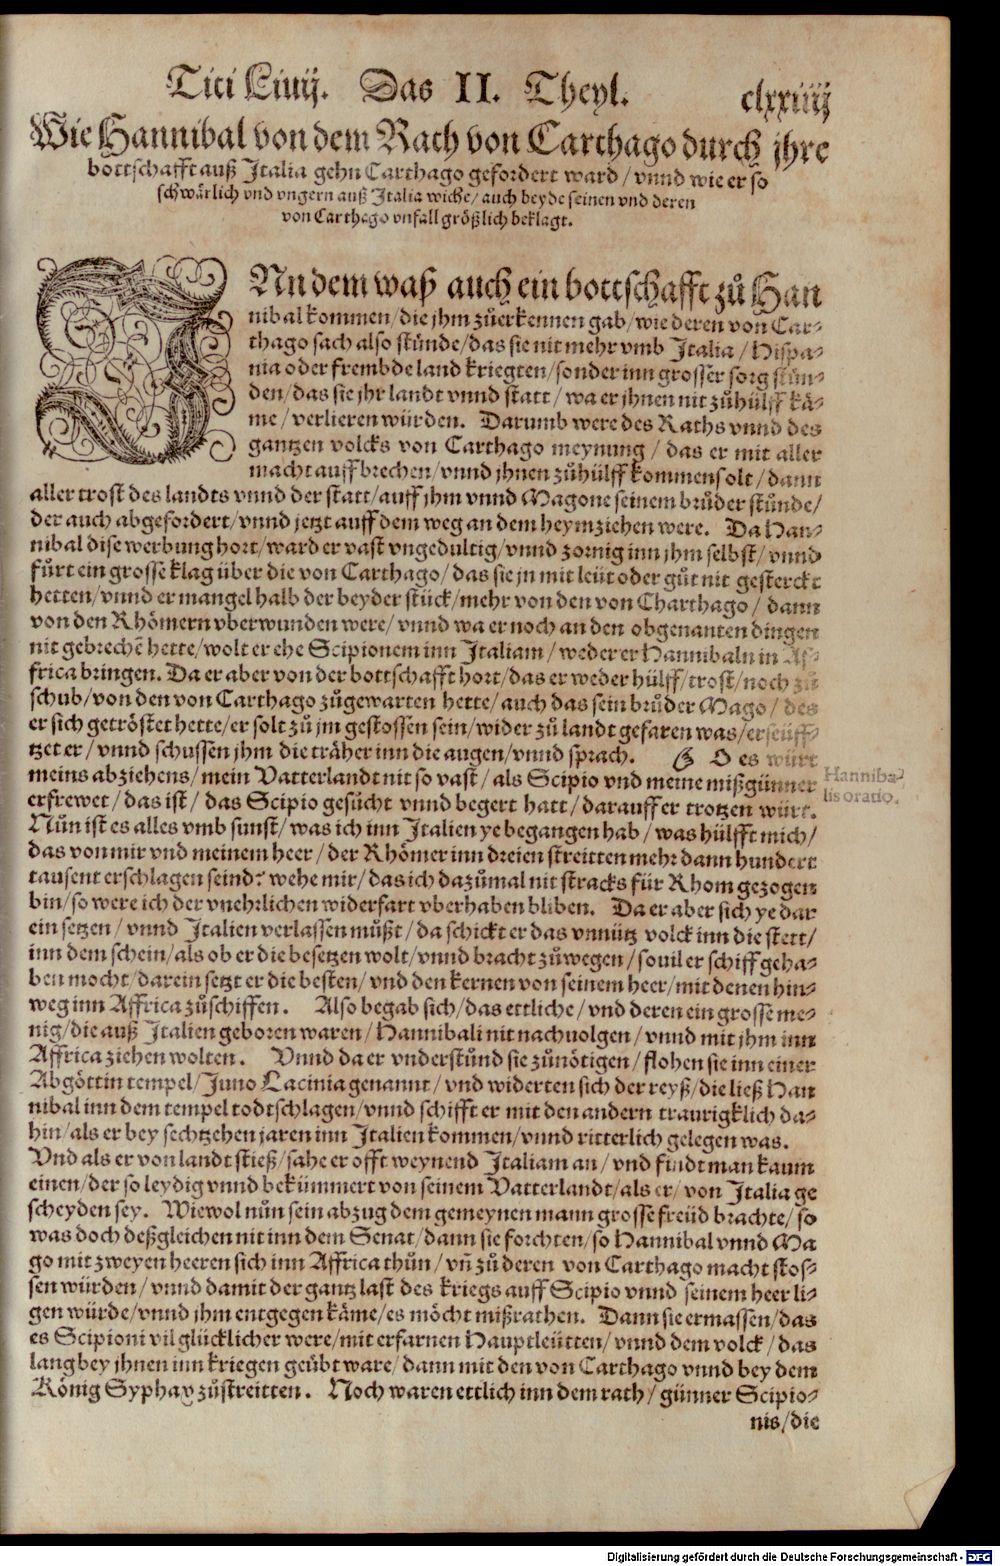 Titi Liuij. Das II. Theyl. clxxiiij
Wie Hannibal von dem Rath von Carthago durch jhre
bottschafft auß Italia gehn Carthago gefordert ward / vnnd wie er so
schwärlich vnd vngern auß Italia wiche / auch beyde seinen vnd deren
von Carthago vnfall größlich beklagt.
INn dem waß auch ein bottschafft zů Han
nibal kommen / die jhm zůerkennen gab / wie deren von Car-
thago sach also stůnde / das sie nit mehr vmb Italia / Hispa-
nia oder frembde land kriegten / sonder inn grosser sorg stůn-
den / das sie jhr landt vnnd statt / wa er jhnen nit zůhülff kä-
me / verlieren würden. Darumb were des Raths vnnd des
gantzen volcks von Carthago meynung / das er mit aller
macht auffbrechen / vnnd jhnen zůhülff kommen solt / dann
aller trost des landts vnnd der statt / auff jhm vnnd Magone seinem brůder stůnde /
der auch abgefordert / vnnd jetzt auff dem weg an dem heymziehen were. Da Han-
nibal dise werbung hort / ward er vast vngedultig / vnnd zornig inn jhm selbst / vnnd
fůrt ein grosse klag über die von Carthago / das sie jn mit leüt oder gůt nit gesterckt
hetten / vnnd er mangel halb der beyder stück / mehr von den von Charthago / dann
von den Rhömern vberwunden were / vnnd wa er noch an den obgenanten dingen
nit gebrechē hette / wolt er ehe Scipionem inn Italiam / weder er Hannibaln in Af-
frica bringen. Da er aber von der bottschafft hort / das er weder hülff / trost / noch zů
schub / von den von Carthago zůgewarten hette / auch das sein brůder Mago / des
er sich getröstet hette / er solt zů jm gestossen sein / wider zů landt gefaren was / erseüff-
tzet er / vnnd schussen jhm die träher inn die augen / vnnd sprach. O es würt
meins abziehens / mein Vatterlandt nit so vast / als Scipio vnd meine mißgünner
Hanniba-
lis oratio.
erfrewet / das ist / das Scipio gesücht vnnd begert hatt / darauff er trotzen würt.
Nůn ist es alles vmb sunst / was ich inn Italien ye begangen hab / was hülfft mich /
das von mir vnd meinem heer / der Rhömer inn dreien streitten mehr dann hundert
tausent erschlagen seind? wehe mir / das ich dazůmal nit stracks für Rhom gezogen
bin / so were ich der vnehrlichen widerfart vberhaben bliben. Da er aber sich ye dar
ein setzen / vnnd Italien verlassen můßt / da schickt er das vnnütz volck inn die stett /
inn dem schein / als ob er die besetzen wolt / vnnd bracht zůwegen / souil er schiff geha-
ben mocht / darein setzt er die besten / vnd den kernen von seinem heer / mit denen hin-
weg inn Affrica zůschiffen. Also begab sich / das ettliche / vnd deren ein grosse me-
nig / die auß Italien geboren waren / Hannibali nit nachuolgen / vnnd mit jhm inn
Affrica ziehen wolten. Vnnd da er vnderstůnd sie zůnötigen / flohen sie inn einer
Abgöttin tempel / Juno Lacinia genannt / vnd widerten sich der reyß / die ließ Han
nibal inn dem tempel todtschlagen / vnnd schifft er mit den andern traurigklich da-
hin / als er bey sechtzehen jaren inn Italien kommen / vnnd ritterlich gelegen was.
Vnd als er von landt stieß / sahe er offt weynend Italiam an / vnd findt man kaum
einen / der so leydig vnnd bekümmert von seinem Vatterlandt / als er / von Italia ge
scheyden sey. Wiewol nůn sein abzug dem gemeynen mann grosse freüd brachte / so
was doch deßgleichen nit inn dem Senat / dann sie forchten / so Hannibal vnnd Ma
go mit zweyen heeren sich inn Affrica thůn / vñ zů deren von Carthago macht stos-
sen würden / vnnd damit der gantz last des kriegs auff Scipio vnnd seinem heer li-
gen würde / vnnd jhm entgegen käme / es möcht mißrathen. Dann sie ermassen / das
es Scipioni vil glücklicher were / mit erfarnen Hauptleütten / vnnd dem volck / das
lang bey jhnen inn kriegen geübt ware / dann mit den von Carthago vnnd bey dem
König Syphax zůstreitten. Noch waren ettlich inn dem rath / günner Scipio-
nis / die
Digitalisierung gefördert durch die Deutsche Forschungsgemeinschaft - DFG